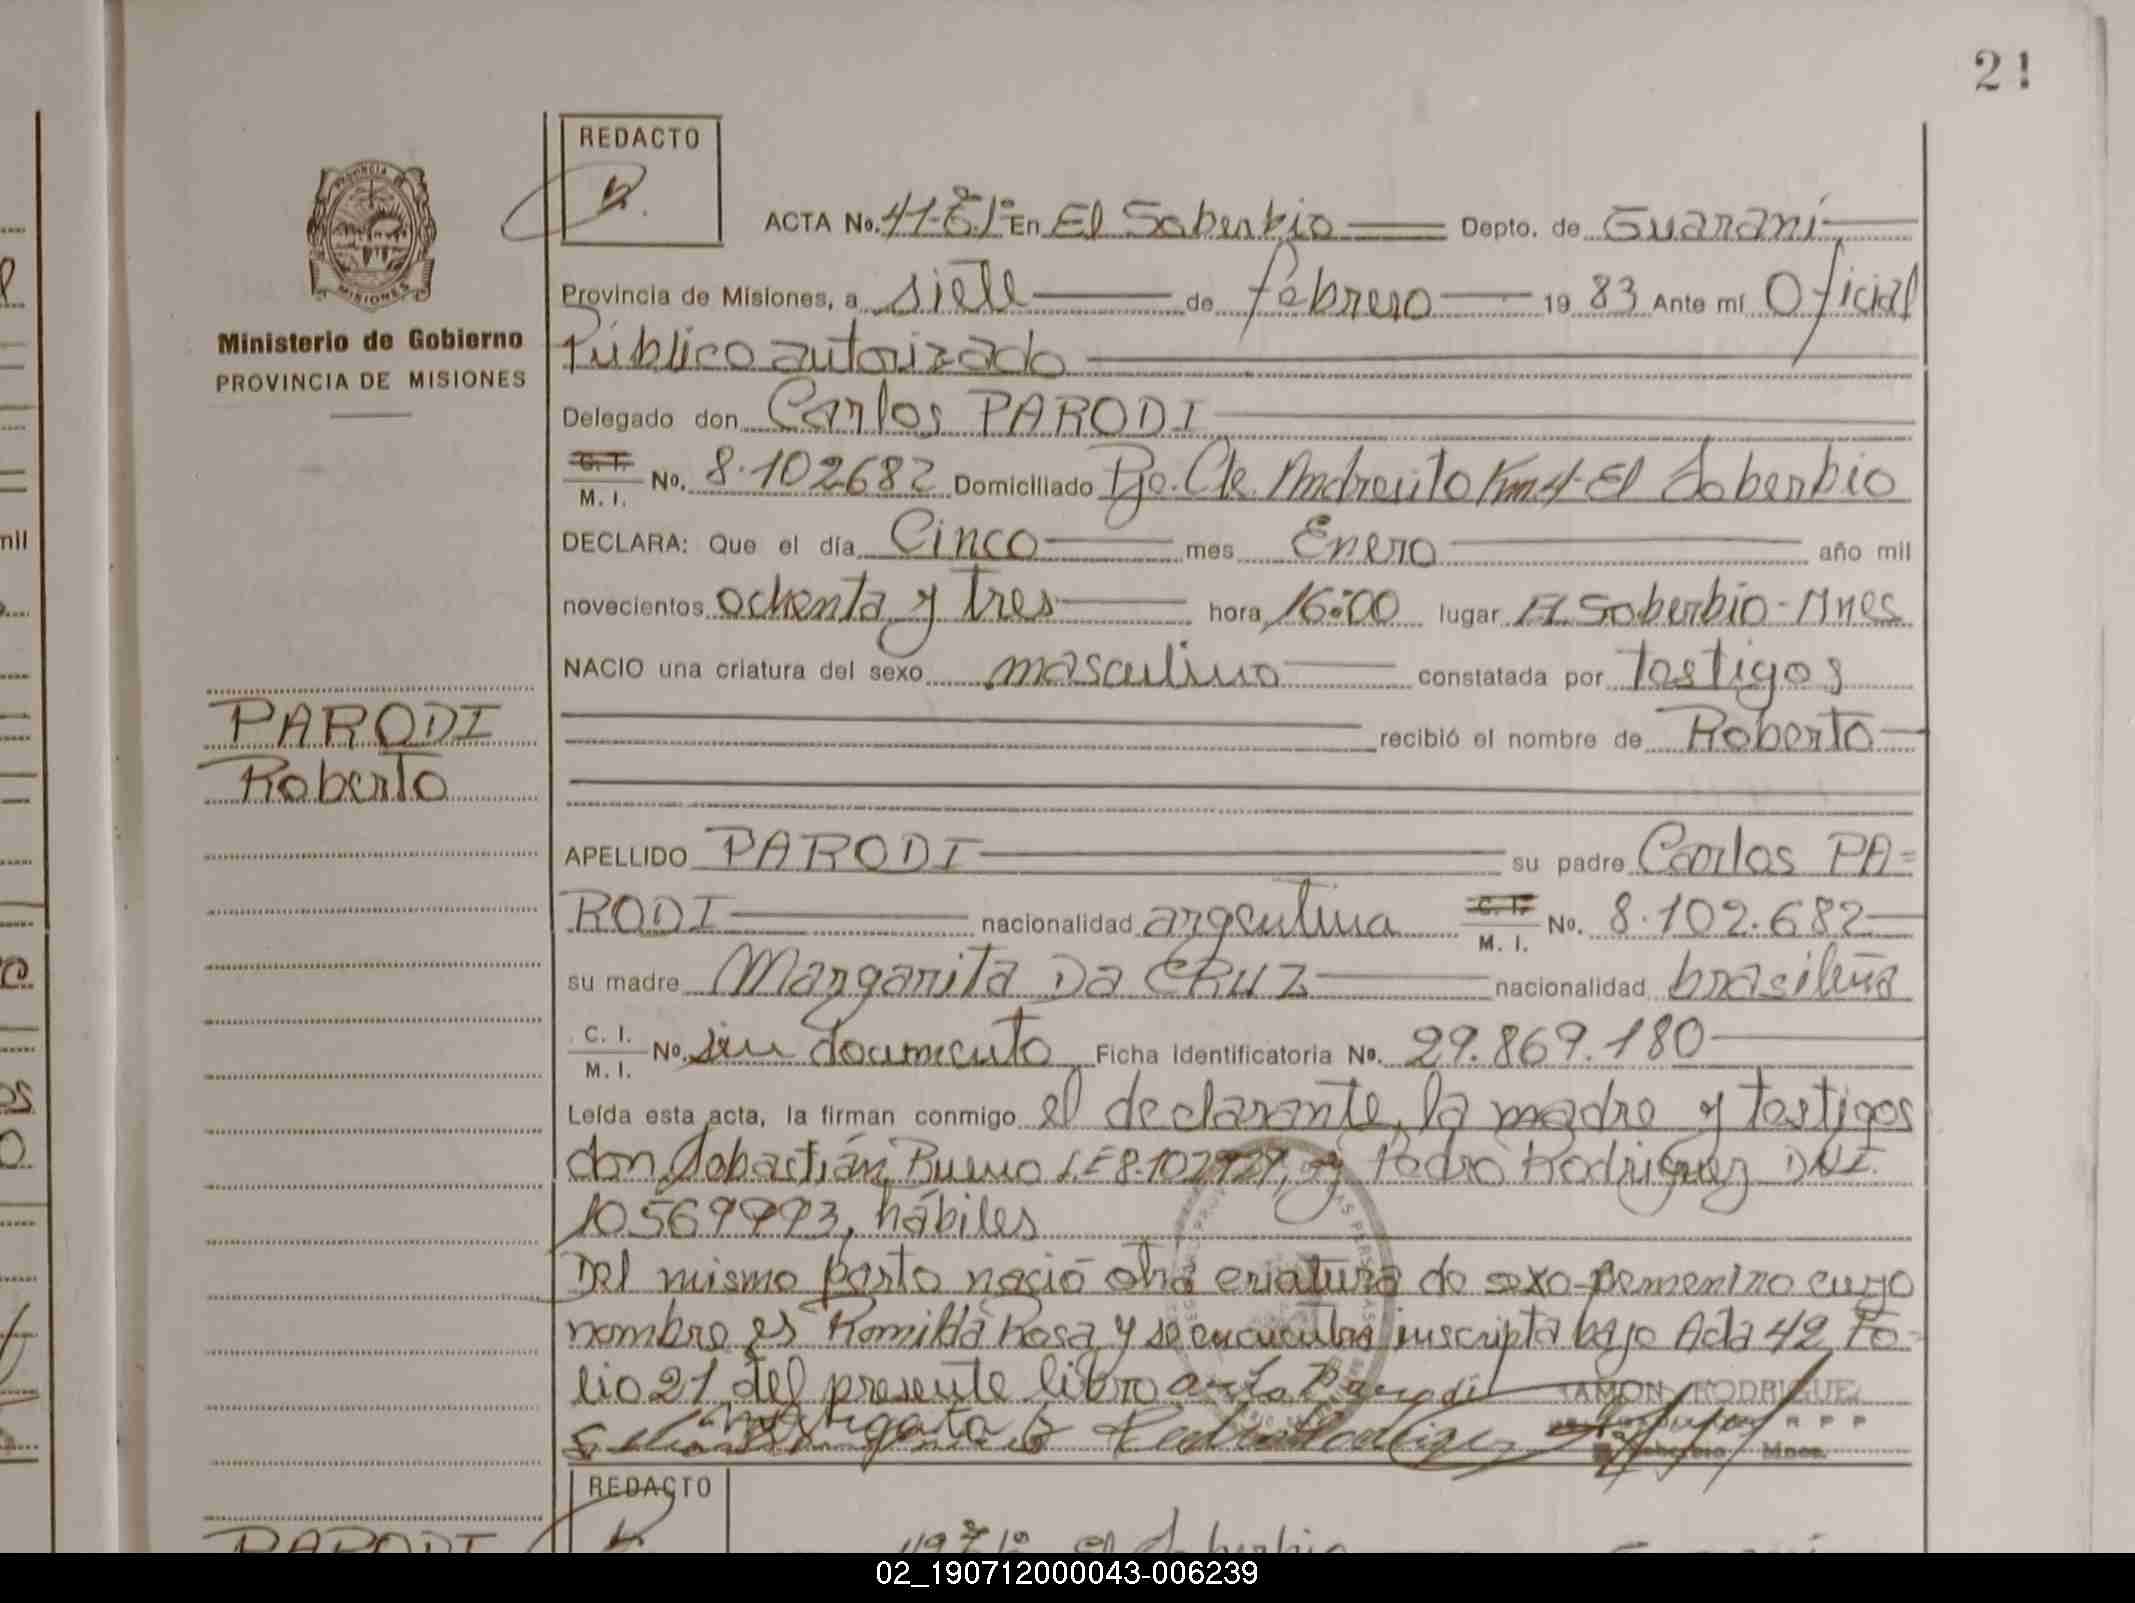 21
REDACTO
ACTA No. 41- En El Soberbio Depto. de Guaraní
Provincia de Misiones, a siete de febrero 19 83 Ante mí Oficial
Público autorizado
Ministerio de Gobierno
PROVINCIA DE MISIONES
Delegado don Carlos PARODI
C. I. M. I. No. 8.102682 Domiciliado Pje. Cte. Andresito Km 4-El Soberbio
DECLARA: Que el día Cinco mes Enero año mil
novecientos ochenta y tres hora 16:00 lugar El Soberbio-Mnes
NACIO una criatura del sexo masculino constatada por testigos
PARODI
recibió el nombre de Roberto
Roberto
APELLIDO PARODI su padre Carlos PA=
RODI nacionalidad argentina C. I. M. I. No. 8.102.682
su madre Margarita Da CRUZ nacionalidad brasileña
C. I. M. I. No. sin documento Ficha Identificatoria No. 29.869.180
Leída esta acta, la firman conmigo el declarante, la madre y testigos
don Sebastián Bueno L.E 8.102927, y Pedro Rodriguez DNI.
10569993, hábiles
Del mismo parto nació otra criatura de sexo femenino cuyo
nombre es Romilda Rosa y se encuentra inscripta bajo Acta 42 Fo-
lio 21 del presente libro
RAMON RODRIGUEZ
R P P
Soberbio Mnes.
REDACTO
PARODI
El Soberbio
02_190712000043-006239